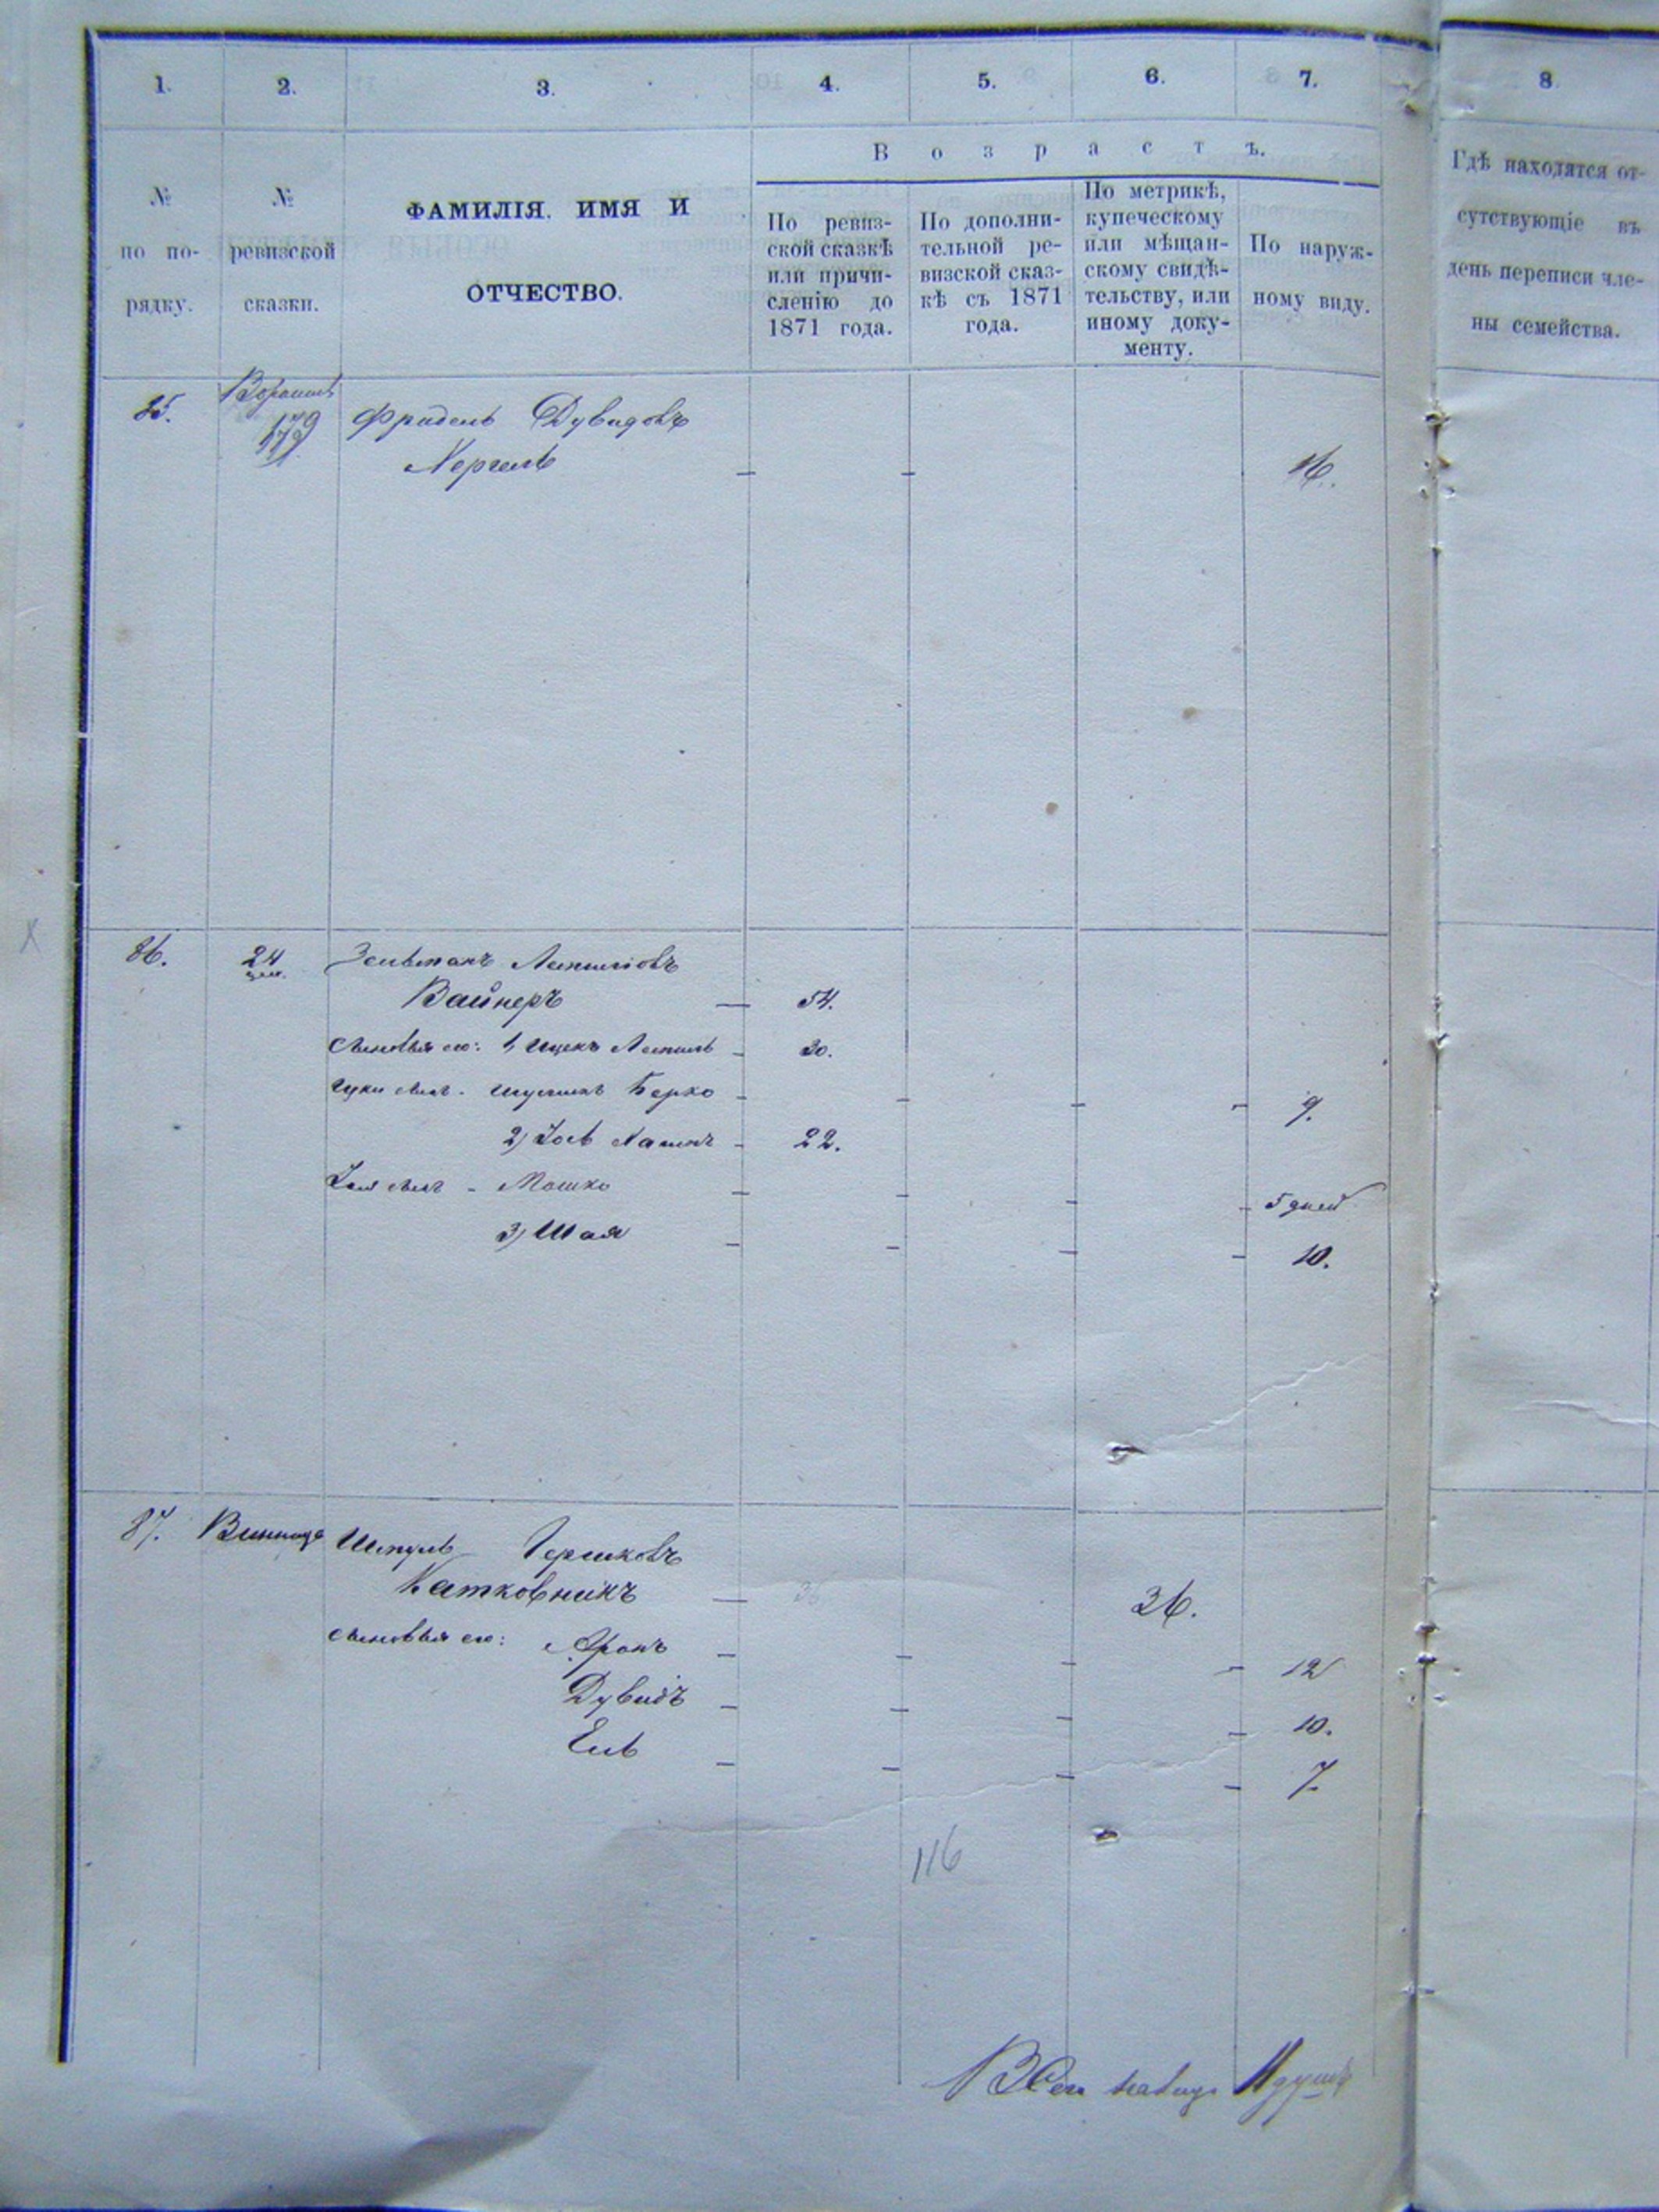 1. 2. 3. 4. 5. 6. 7. 8.
№ по по-рядку.
№ ревизской сказки.
ФАМИЛІЯ. ИМЯ И
ОТЧЕСТВО.
Возрастъ.
По ревиз-
ской сказкѣ
или причи-
сленію до
1871 года.
По дополни-
тельной ре-
визской сказ-
кѣ съ 1871
года.
По метрикѣ,
купеческому
или мѣщан-
скому свидѣ-
тельству, или
иному доку-
менту.
По наруж-
ному виду.
Гдѣ находятся от-
сутствующіе въ
день переписи чле-
ны семейства.
85. 179 Фридель Дувидовъ
16.
86. 24 Зельманъ
Вайнеръ — 54.
Сыновья его: 1, Ицекъ - 30.
Ицки сынъ - Берко - - - - 9.
2, - 22.
сынъ - Мошко - - - - 5 дней
3, Шая - - - - 10.
87. Винница Шмуль Гершковъ
Катковникъ — 36 36.
Сыновья его: Аронъ - - - - 12
Дувидъ - - - - 10.
Ель - - - - 7
116